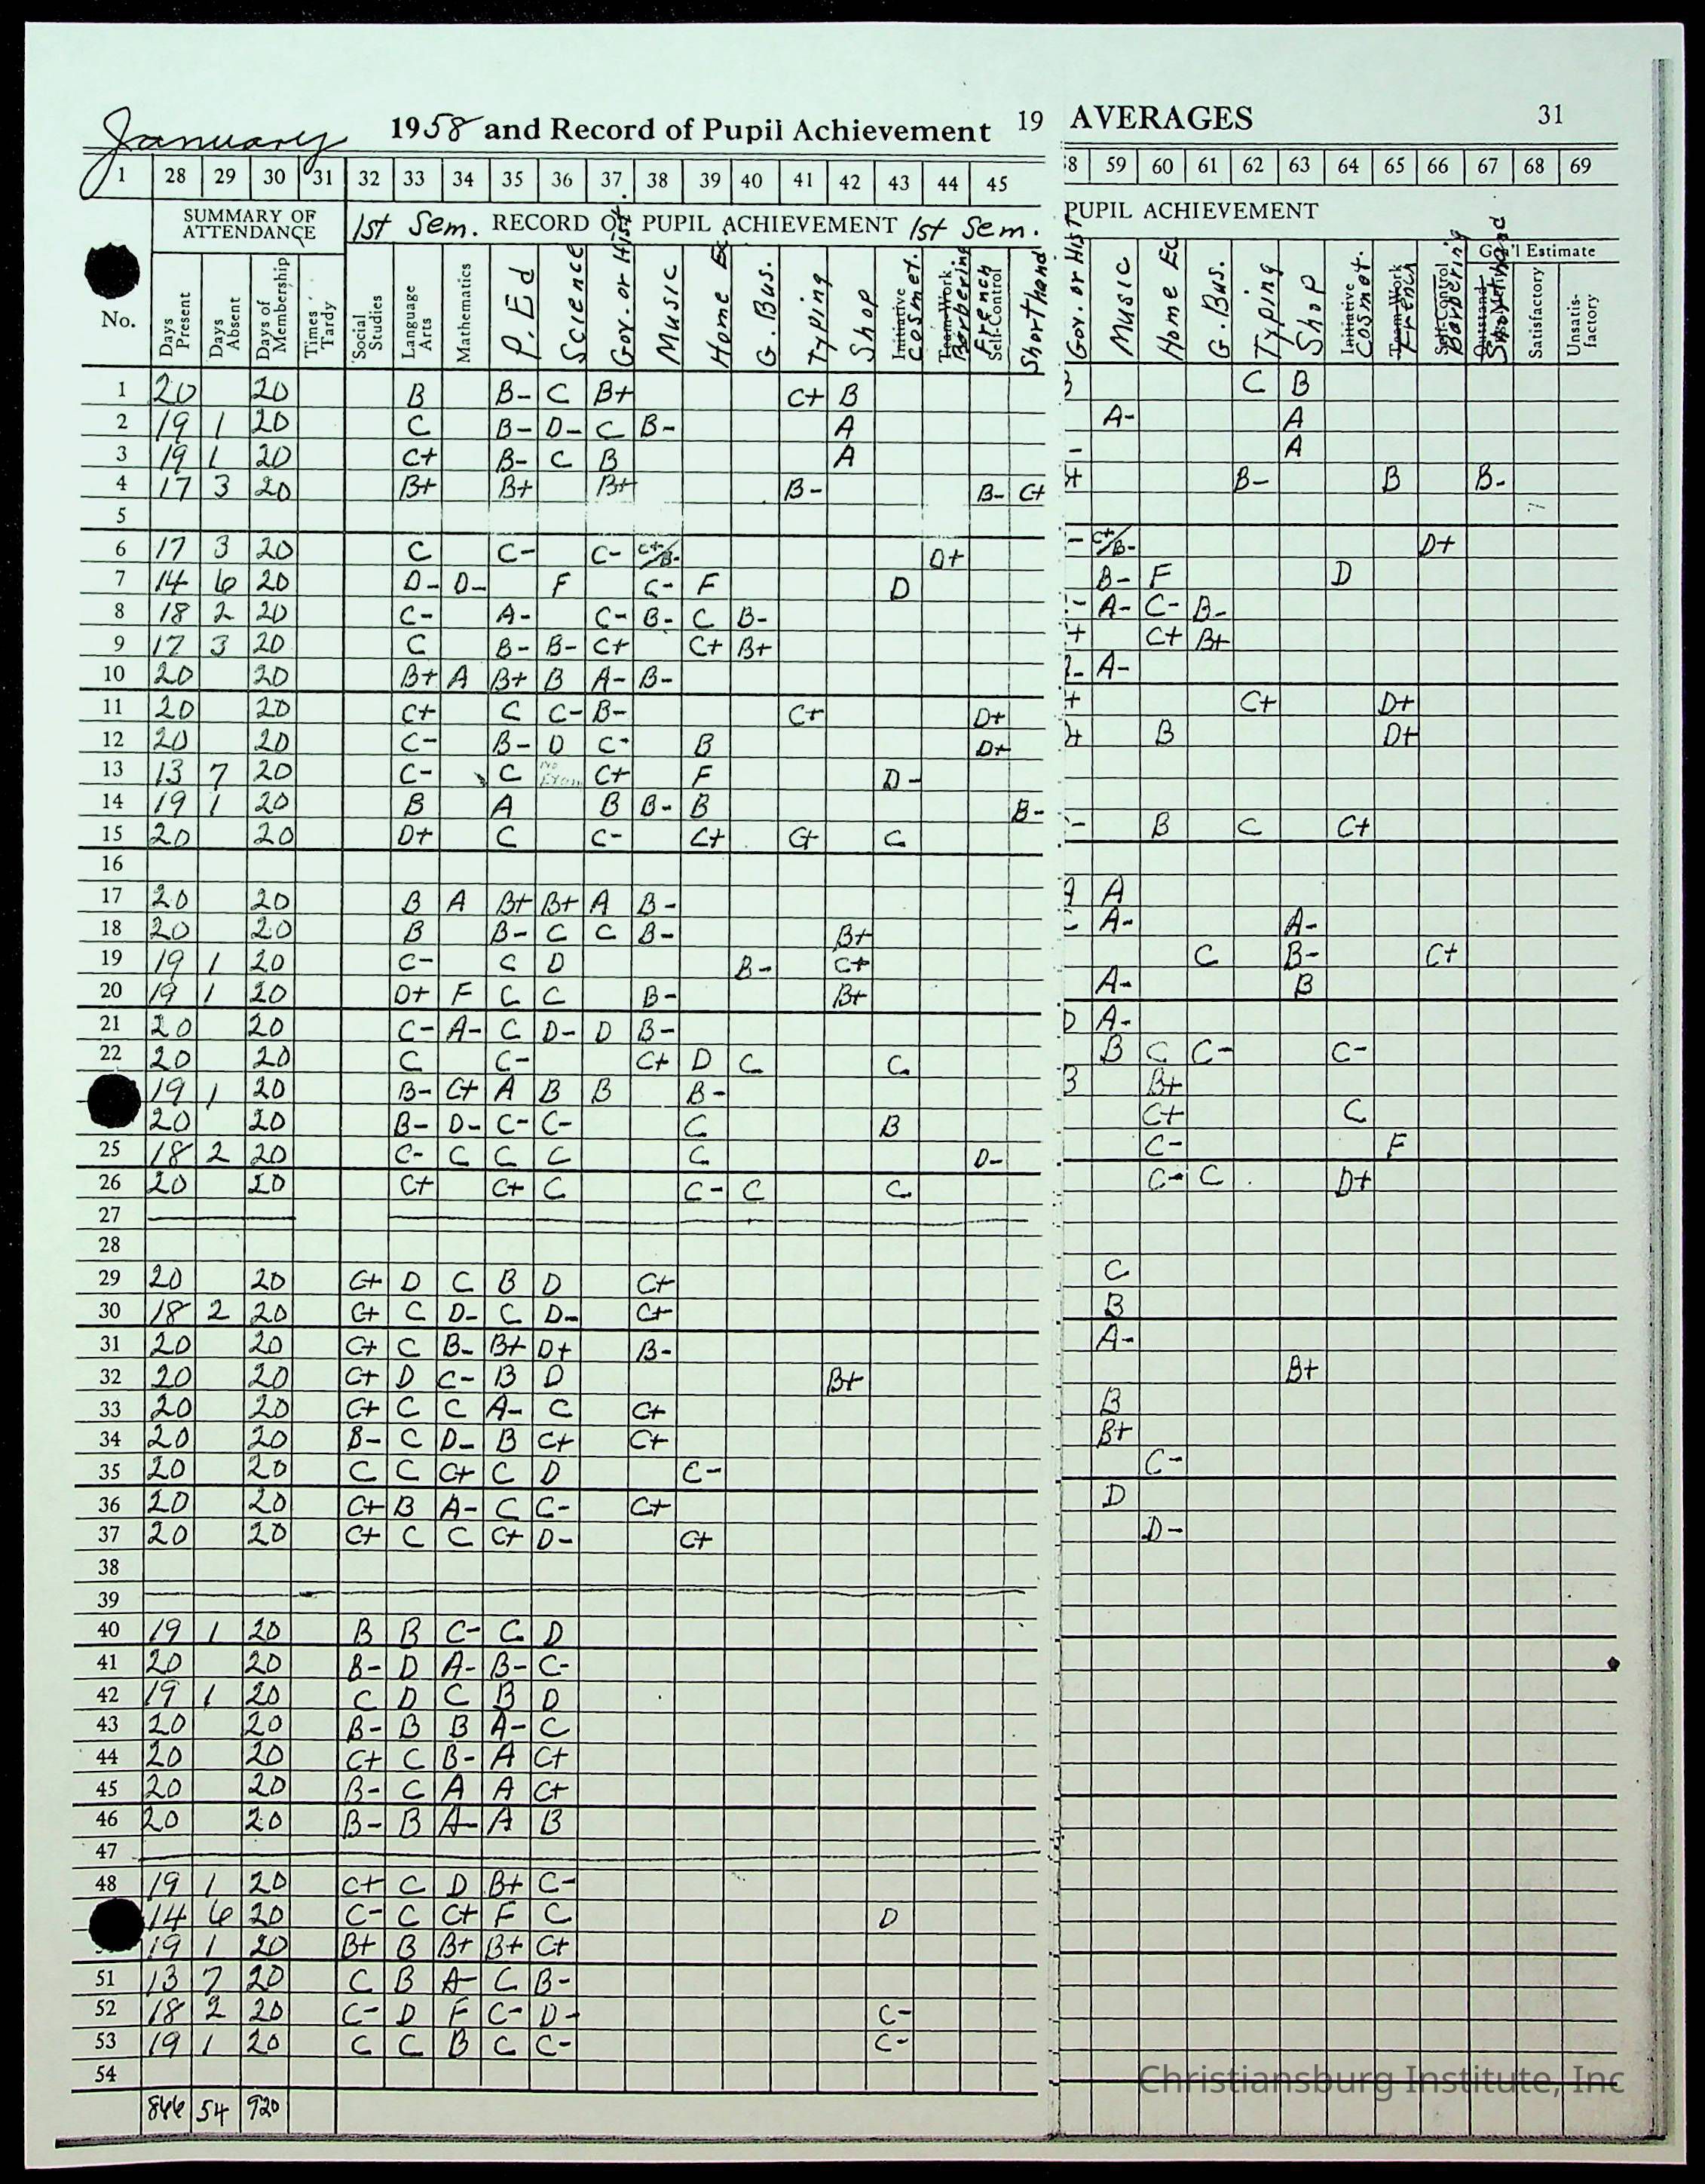 January 1958 and Record of Pupil Achievement 19 AVERAGES 31
1 28 29 30 31 32 33 34 35 36 37 38 39 40 41 42 43 44 45 58 59 60 61 62 63 64 65 66 67 68 69
SUMMARY OF ATTENDANCE 1st Sem. RECORD OF PUPIL ACHIEVEMENT 1st Sem. PUPIL ACHIEVEMENT
Gen'l Estimate
No. Days Present Days Absent Days of Membership Times Tardy Social Studies Language Arts Mathematics P.Ed Science Gov. or Hist. Music Home Ec G. Bus. Typing Shop Initiative Cosmet. Team-Work Barbering French Self-Control Shorthand Gov. or Hist Music Home Ec G. Bus. Typing Shop Initiative Cosmot. Team-Work French Self-Control Barbering Shorthand Satisfactory Unsatis-factory
1 20 20 B B- C B+ C+ B C B
2 19 1 20 C B- D- C B- A A- A
3 19 1 20 C+ B- C B A - A
4 17 3 20 B+ B+ B+ B- B- C+ + B- B B-
5
6 17 3 20 C C- C- C+/B- D+ - C+/B- D+
7 14 6 20 D- D- F C- F D B- F D
8 18 2 20 C- A- C- B- C B- - A- C- B-
9 17 3 20 C B- B- C+ C+ B+ + C+ B+
10 20 20 B+ A B+ B A- B- - A-
11 20 20 C+ C C- B- C+ D+ + C+ D+
12 20 20 C- B- D C- B D+ + B D+
13 13 7 20 C- C No Exam C+ F D-
14 19 1 20 B A B B- B B-
15 20 20 D+ C C- C+ C+ C - B C C+
16
17 20 20 B A B+ B+ A B- A A
18 20 20 B B- C C B- B+ C A- A-
19 19 1 20 C- C D B- C+ C B- C+
20 19 1 20 D+ F C C B- B+ A- B
21 20 20 C- A- C D- D B- D A-
22 20 20 C C- C+ D C C B C C- C-
19 1 20 B- C+ A B B B- B B+
20 20 B- D- C- C- C B C+ C
25 18 2 20 C- C C C C D- C- F
26 20 20 C+ C+ C C- C C C- C D+
27
28
29 20 20 C+ D C B D C+ C
30 18 2 20 C+ C D- C D- C+ B
31 20 20 C+ C B- B+ D+ B- A-
32 20 20 C+ D C- B D B+ B+
33 20 20 C+ C C A- C C+ B
34 20 20 B- C D- B C+ C+ B+
35 20 20 C C C+ C D C- C-
36 20 20 C+ B A- C C- C+ D
37 20 20 C+ C C C+ D- C+ D-
38
39
40 19 1 20 B B C- C D
41 20 20 B- D A- B- C-
42 19 1 20 C D C B D
43 20 20 B- B B A- C
44 20 20 C+ C B- A C+
45 20 20 B- C A A C+
46 20 20 B- B A- A B
47
48 19 1 20 C+ C D B+ C-
14 6 20 C- C C+ F C D
19 1 20 B+ B B+ B+ C+
51 13 7 20 C B A- C B-
52 18 2 20 C- D F C- D- C-
53 19 1 20 C C B C C- C-
54
866 54 920
Christiansburg Institute, Inc